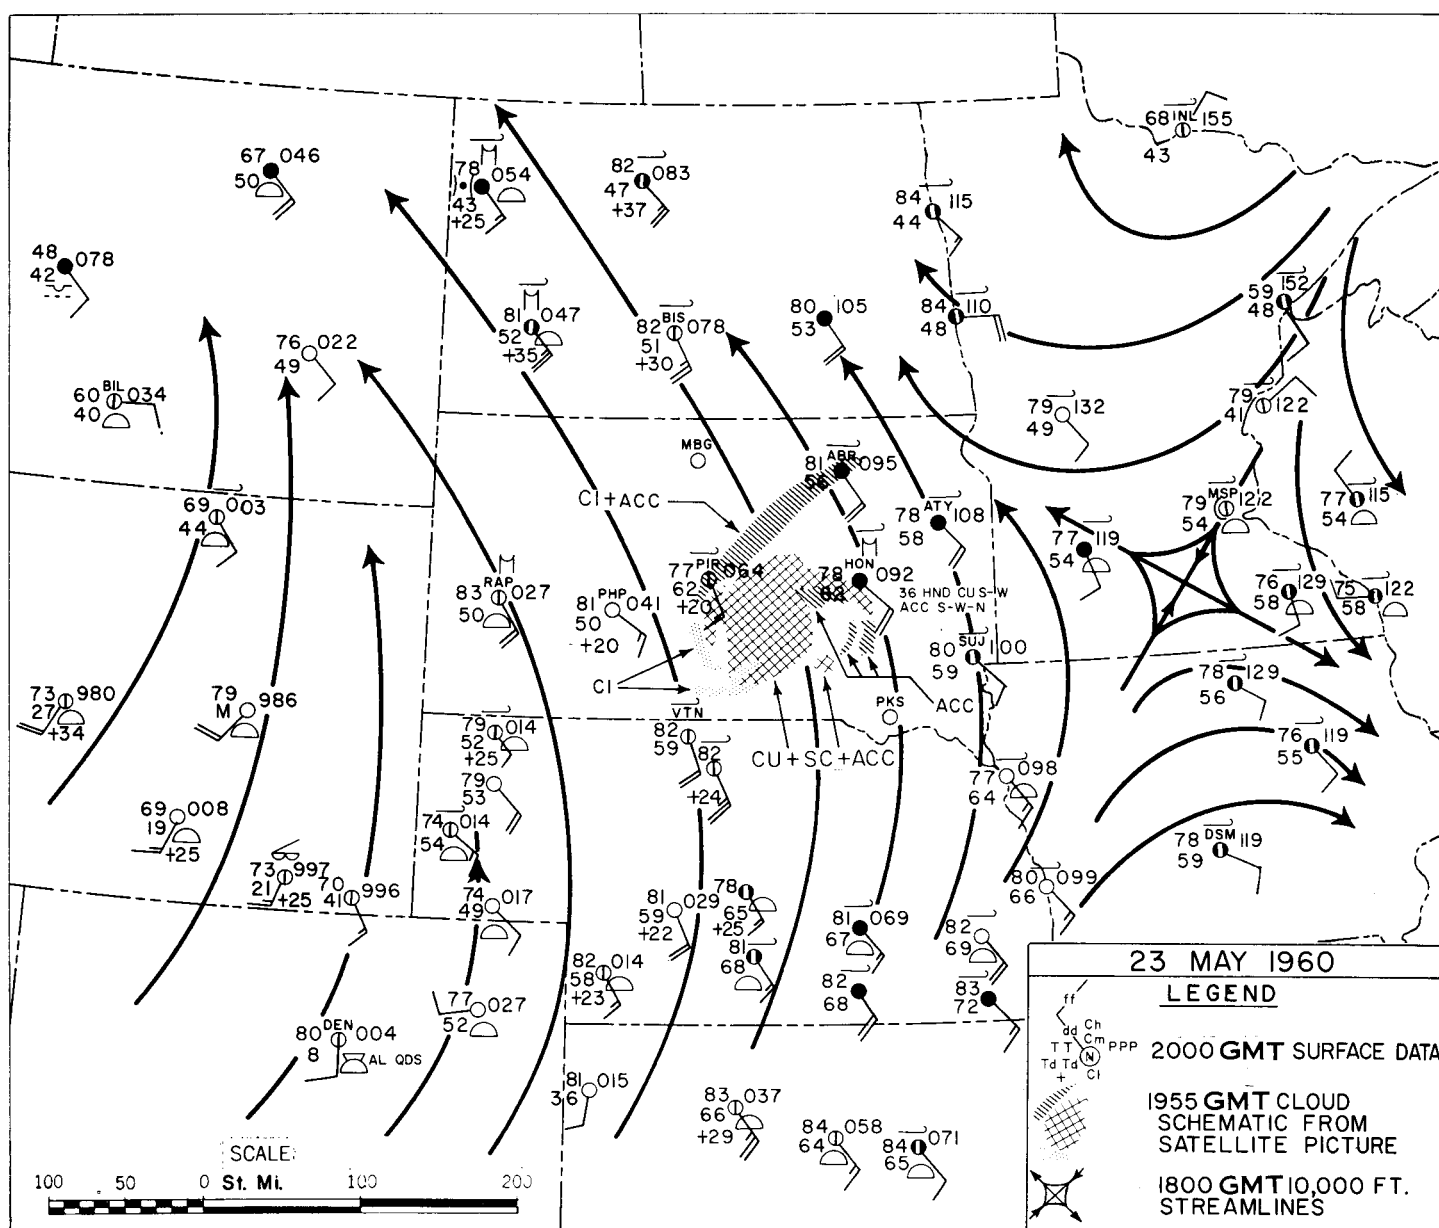 68 INL 155
43
67 046
50
78 054
43
+25
82 083
47
+37
84 115
44
48 078
42
81 047
52
+35
BIS
82 078
51
+30
80 105
53
84 110
48
59 152
48
76 022
49
BIL
60 034
40
79 132
49
79 122
41
MBG
81 ABR 095
56
CI+ACC
69 003
44
78 ATY 108
58
MSP
79 122
54
77 115
54
77 119
54
RAP
83 027
50
PHP
81 041
50
+20
77 PIR 064
62
+20
HON
78 092
36 HND CU S-W
ACC S-W-N
76 129
58
75 122
58
SUJ
80 100
59
CI
ACC
PKS
78 129
56
73 980
27
+34
79 986
M
79 014
52
+25
VTN
82
59
82
+24
CU+SC+ACC
76 119
55
79
53
77 098
64
69 008
19
+25
74 014
54
78 DSM 119
59
73 997
21
+25
70 996
41
74 017
49
81 029
59
+22
78
65
+25
81 069
67
80 099
66
82
69
82 014
58
+23
81
68
82
68
83
72
80 DEN 004
8
AL QDS
77 027
52
81 015
36
83 037
66
+29
84 058
64
84 071
65
SCALE
100 50 0 St. Mi. 100 200
23 MAY 1960
LEGEND
ff
dd Ch
Cm
TT PPP
N
Td Td
+ Cl
2000 GMT SURFACE DATA
1955 GMT CLOUD
SCHEMATIC FROM
SATELLITE PICTURE
1800 GMT 10,000 FT.
STREAMLINES